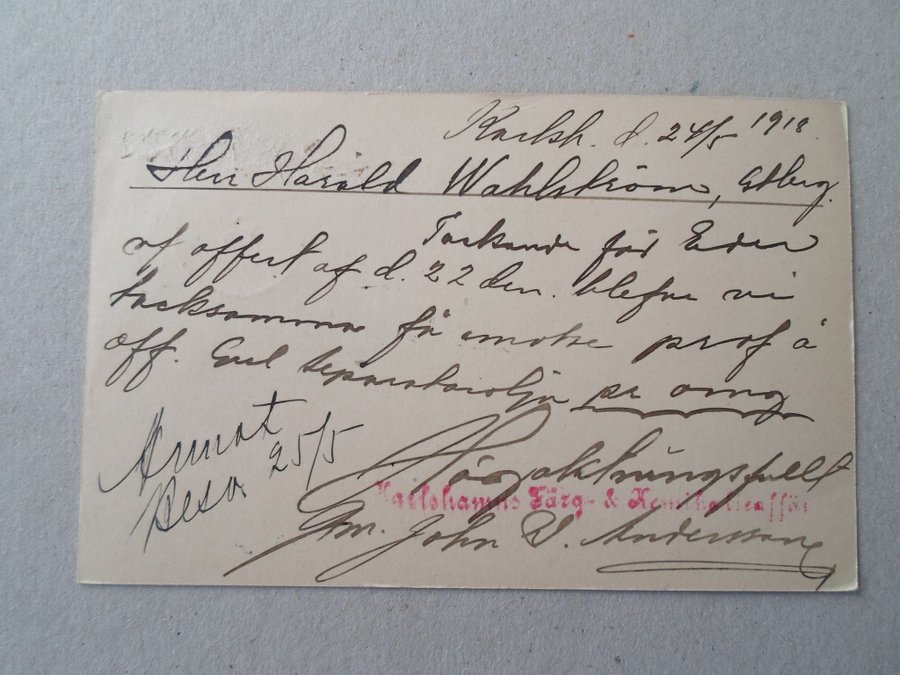 Karlsh. d. 24/5 1918.
Herr Harald Wahlström, Gtbrg.
Tackande för Eder
offert af d. 22 den. blefve vi
tacksamma få emotse prof å
off. Eng. Separatorolja pr omg
Högaktningsfullt
Karlshamns Färg- & Kemikalieaffär
Gm. John V. Andersson
Annot
Resa 25/5